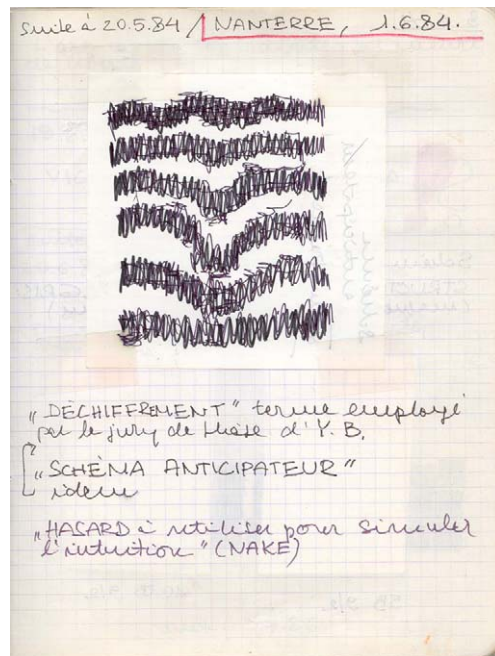 Suite à 20.5.84 / NANTERRE, 1.6.84.
"DÉCHIFFREMENT" terme employé
par le jury de thèse d'Y.B.
"SCHÉMA ANTICIPATEUR"
idem
"HASARD à utiliser pour simuler
l'intuition" (NAKE)